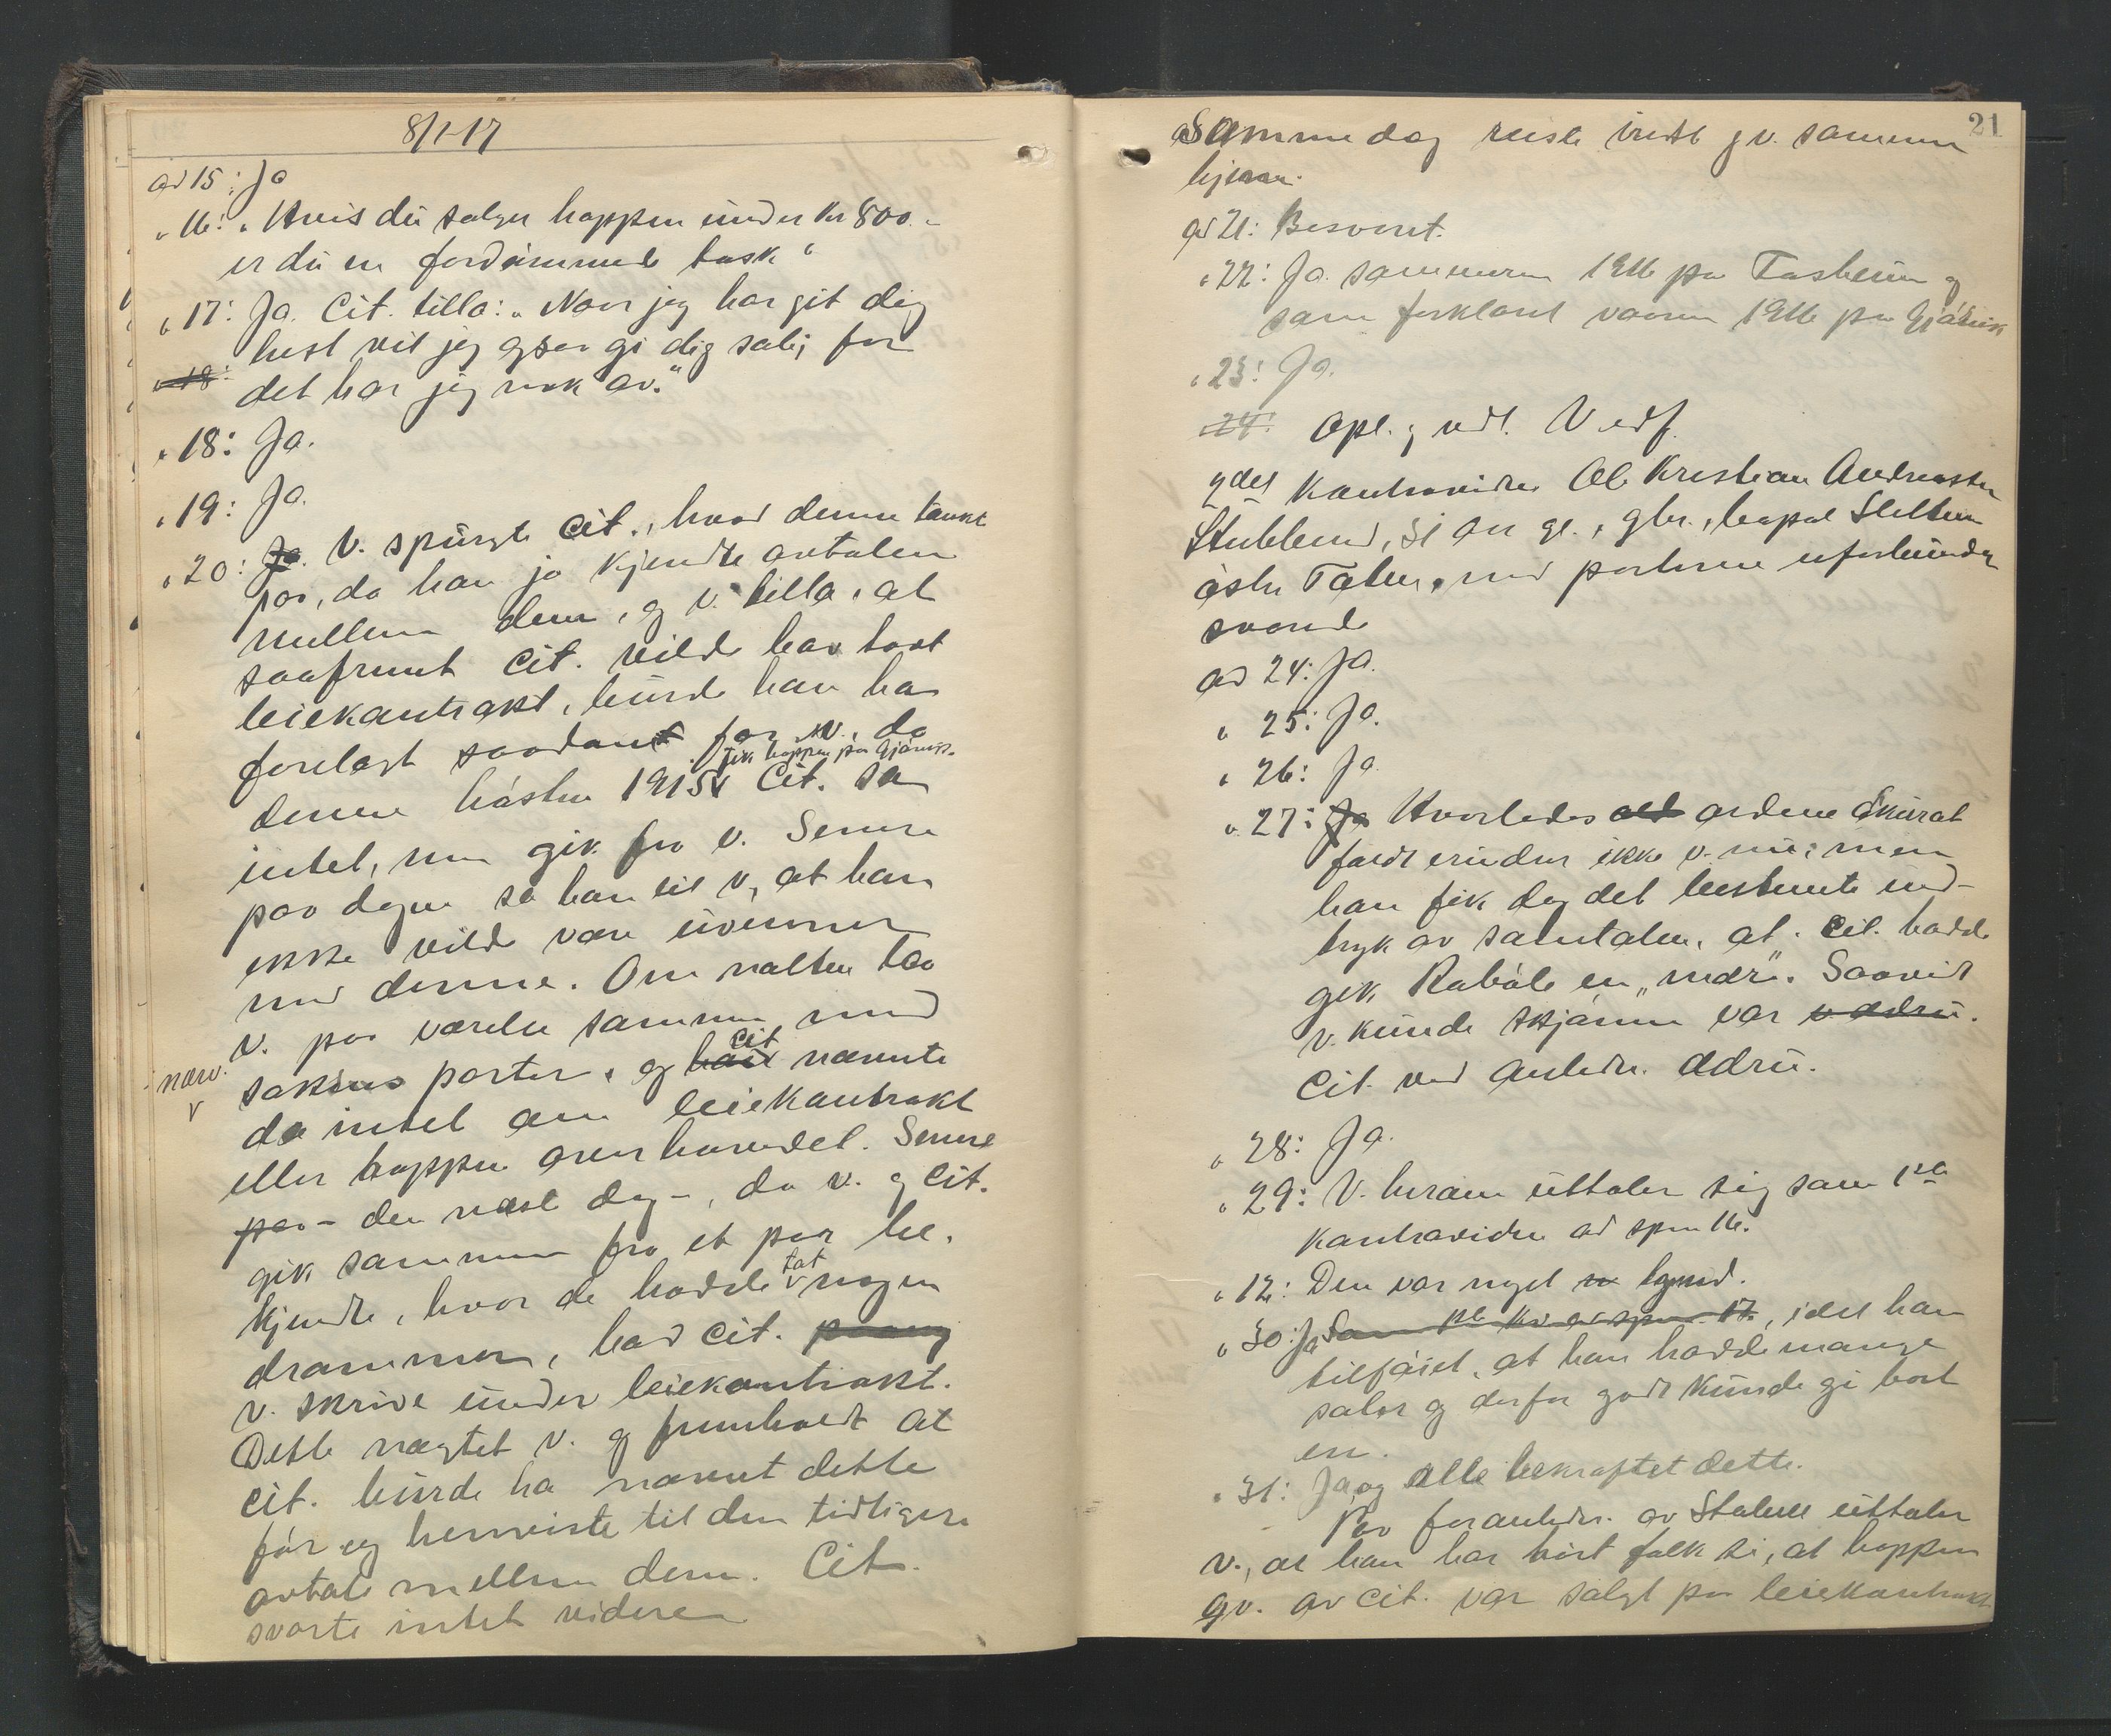 8/1-17
ad 15: Ja
" 16: "Hvis du sælger hoppen under Kr 800.-
er du en fordømmede task"
" 17: Ja. Cit. tilla: "Naar jeg har git dig
hest vil jeg ogsaa gi dig sale; for
" 18:
det har jeg nok av."
" 18: Ja.
" 19: Ja.
" 20: Ja. V. spurgte Cit., hvad denne tænkte
paa, da han jo kjendte avtalen
mellem dem, og v. tilla, at
saafremt Cit. vilde hav havt
leiekontrakt, burde han ha
forelagt saadant for v., da
fik hoppen paa Gjøvik.
denne høsten 1915 Cit. sa
intet, men gik fra v. Senere
paa dagen sa han til v, at han
ikke vilde være uvenner
med denne. Om natten laa
v. paa værelse sammen med
nærv.
cit
sakens parter, og han nævnte
da intet om leiekontrakt
eller hoppen overhovedet. Senere
paa - den næste dag -, da v. og Cit.
gik sammen fra et par be-
tat
kjendte, hvor de hadde nogen
drammer, bad Cit. paany
v. skrive under leiekontrakt.
Dette nægtet v. og fremholdt at
Cit. burde ha nævnt dette
før og henviste til den tidligere
avtale mellem dem. Cit.
svarte intet videre
21
Samme dag reiste indst. og v. sammen
hjem.
ad 21: Besvaret.
" 22: Ja. sommeren 1916 paa Tasheim og
som forklaret vaaren 1916 paa Gjøvik
" 23: Ja.
24: Opl. og vedt. V. edf.
2det Kontravidne Ole Kristian Andreassen
Stubberud, 31 aar gl., gbr., bopæl Sletten
østre Toten, med parterne uforbunden
svarede
ad 24: Ja.
" 25: Ja.
" 26: Ja.
" 27: Ja Hvorledes ordene akurat
faldt erindrer ikke v. nu; men
han fik dog det bestemte ind-
tryk av samtalen, at Cit. hadde
git Rabøle en "mær". Saavidt
v. kunde skjønne var
Cit. ved anledn. ædru.
" 28: Ja.
" 29: V. herom uttaler sig som 1ste
Kontravidne ad spm 16.
" 12: Den var noget tynd.
" 30: Ja Som 1ste Kv ad spm 17, idet han
tilføiet, at han hadde mange
saler og derfor godt kunde gi bort
en.
" 31: Ja, og Alle bekræftet dette.
Paa foranledn. av Stabell uttaler
v., at han har hørt folk si, at hoppen
gv. av Cit. var solgt paa leiekontrakt